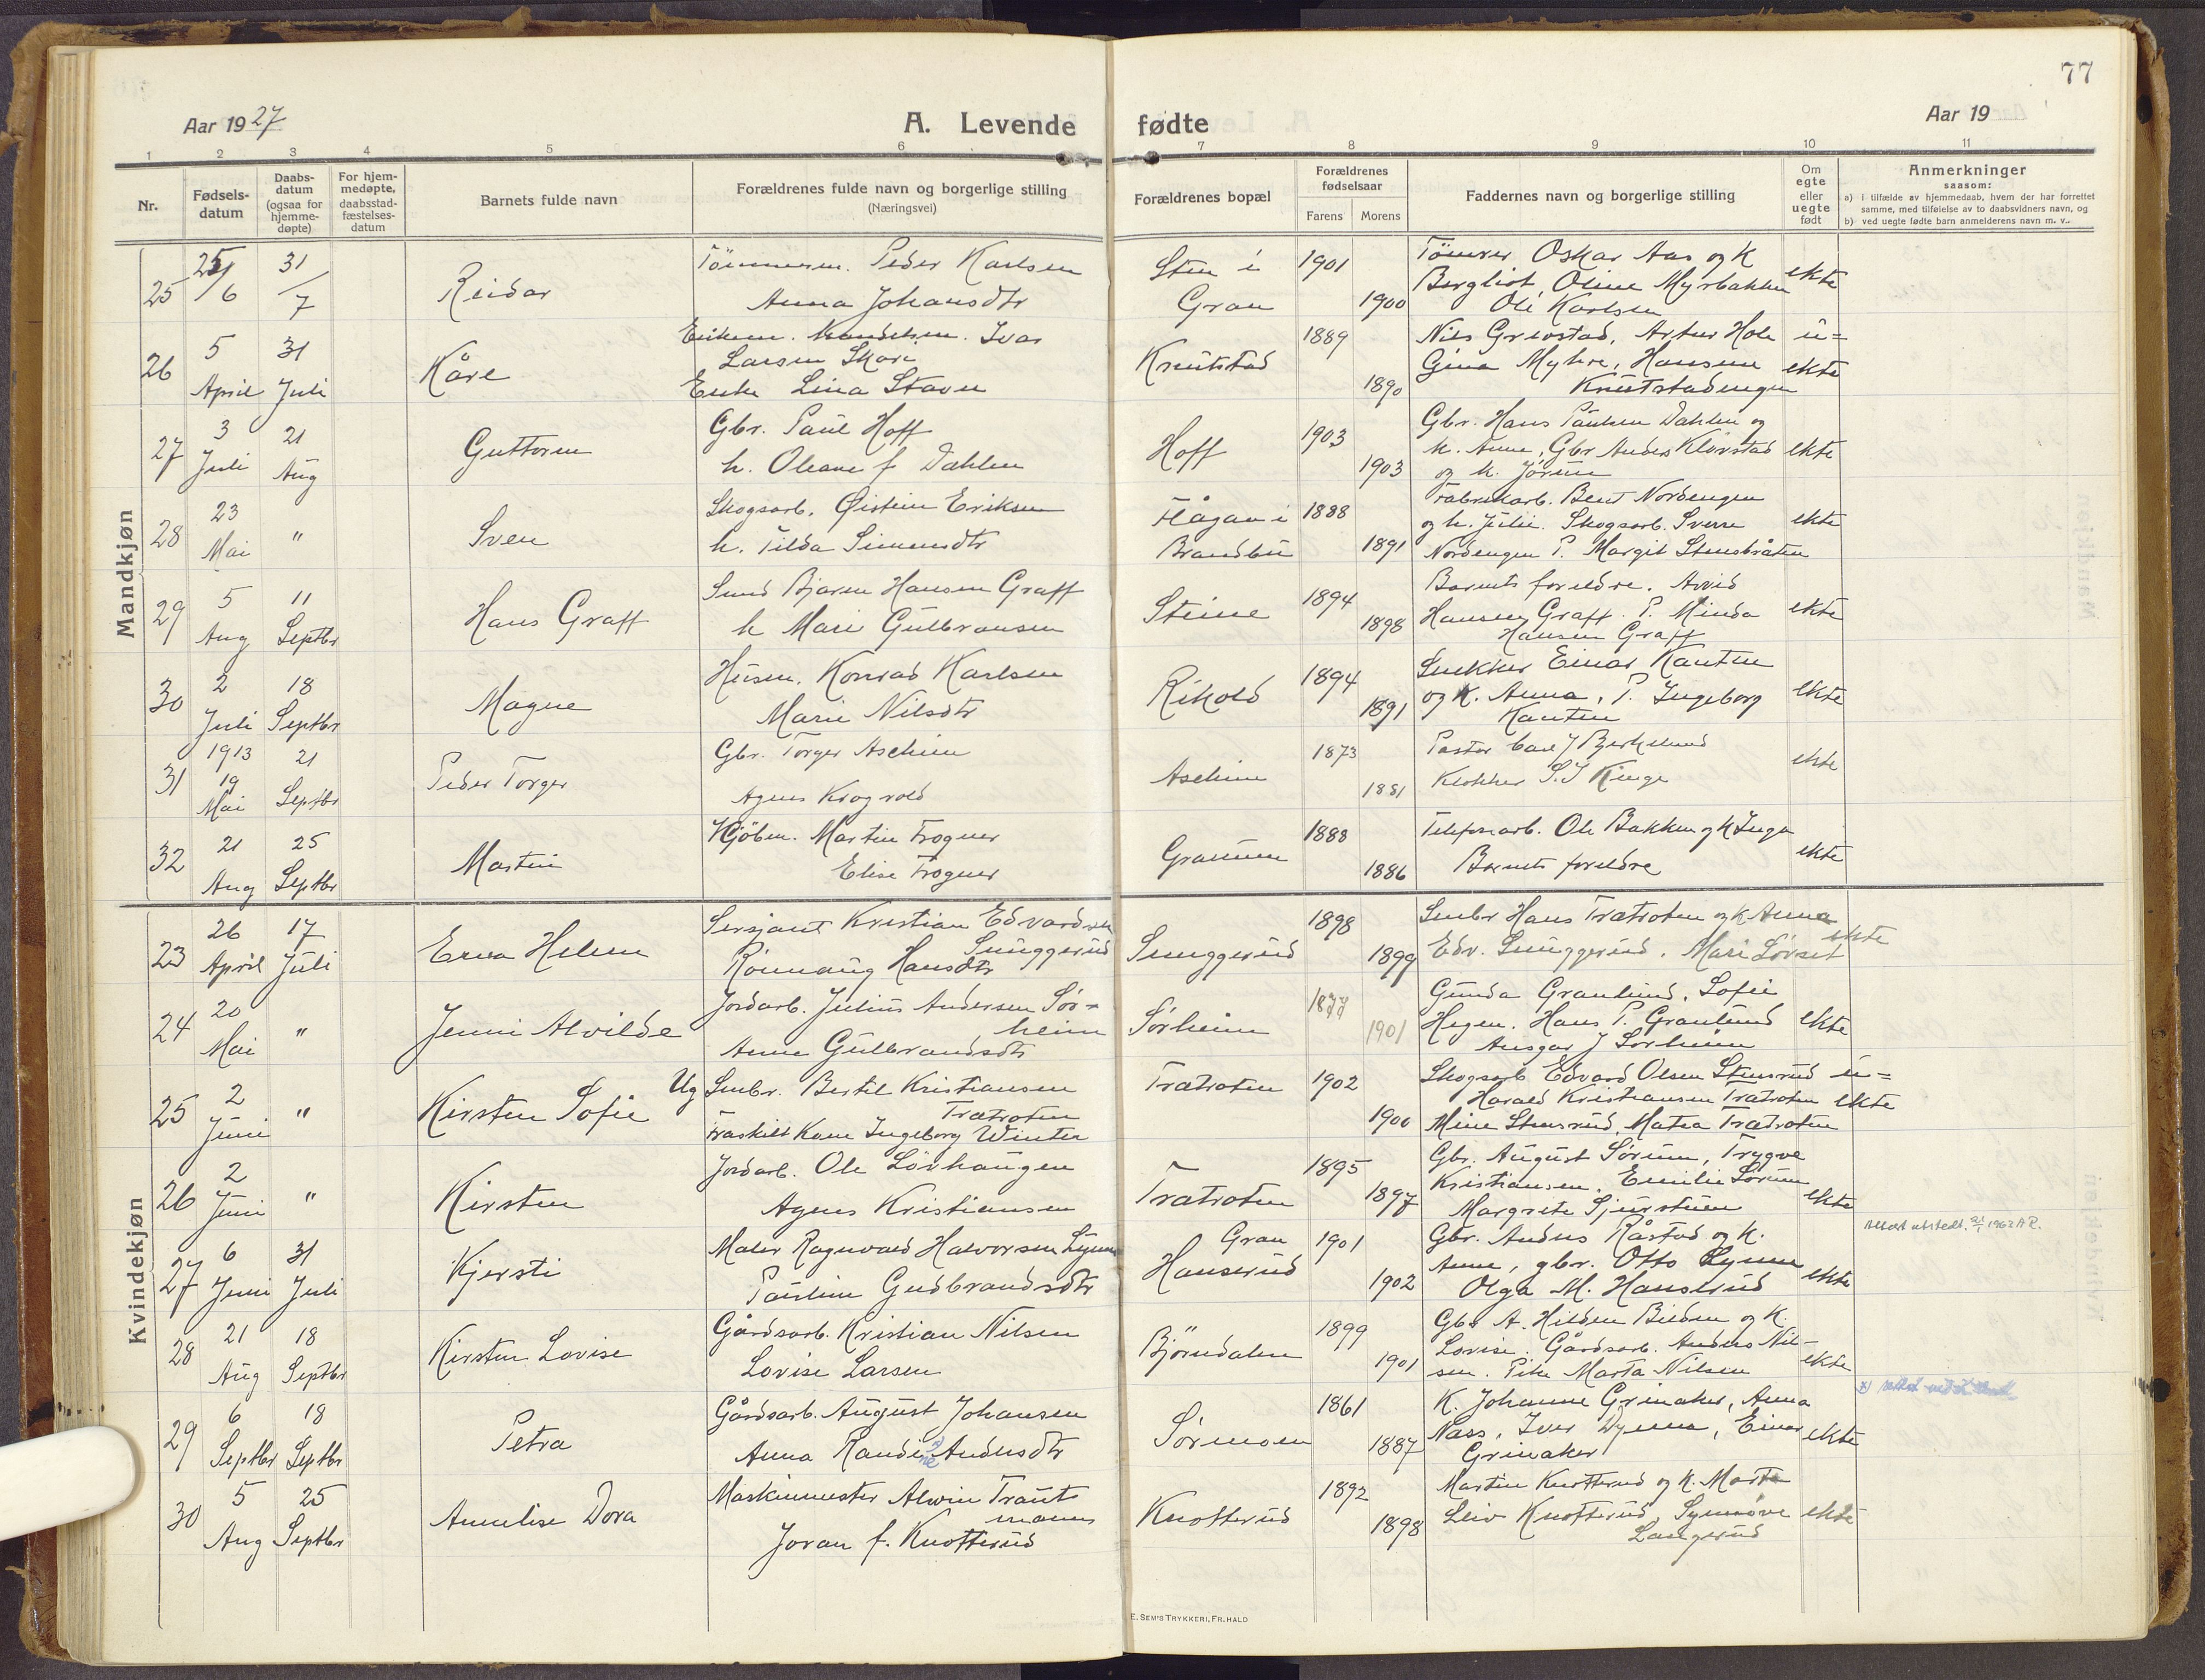 77
Aar 1927
A. Levende fødte
Aar 19
1 2 3 4 5 6 7 8 9 10 11
Nr.
Fødsels-
datum
Daabs-
datum
(ogsaa for
hjemme-
døpte)
For hjem-
medøpte,
daabsstad-
fæstelses-
datum
Barnets fulde navn
Forældrenes fulde navn og borgerlige stilling
(Næringsvei)
Forældrenes bopæl
Forældrenes
fødselsaar
Farens Morens
Faddernes navn og borgerlige stilling
Om
egte
eller
uegte
født
Anmerkninger
saasom:
a) i tilfælde av hjemmedaab, hvem der har forrettet
samme, med tilføielse av to daabsvidners navn, og
b) ved uegte fødte barn anmelderens navn m. v..
Mandkjøn
25 25/6 31/7 Reidar
Tømmerm. Peder Karlsen
Anna Johansdtr
Sten i
Gran
1901
1900
Tömrer Oskar Aas og K
Bergliot, Oline Myrbakken
Ole Karlsen
ekte
26 5 April 31 Juli Kåre
Enkem. Ivar
Larsen Skare
Enke Lina Staven
Knutstad
1889
1890
Nils Grevstad, Artur Hole
Gina Myhre, Hansine
Knutstadengen
u=
ekte
27 3 Juli 21 Aug Guttorm
Gbr. Paul Hoff
h. Oleane f Dahlen
Hoff
1903
1903
Gbr. Hans Paulsen Dahlen og
k. Anne, Gbr Anders Klövstad
og k. Jörine
ekte
28 23 Mai " Sven
Skogsarb. Øistein Eriksen
h. Tilda Simensdtr
Flågan i
Brandbu
1888
1891
Fabrikarb. Bent Nordengen
og h. Julie. Skogsarb. Sverre
Nordengen P. Margit Stensbråten
ekte
29 5 Aug 11 Septbr Hans Graff
Smed Bjarne Hansen Graff
h Mari Gulbransen
Steine
1894
1898
Barnets foreldre. Arvid
Hansen Graff. P. Minda
Hansen Graff
ekte
30 2 Juli 18 Septbr Magne
Husm. Konrad Karlsen
Marie Nilsdtr
Rikold
1894
1891
Snekker Einar Kanten
og K. Anna, P. Ingeborg
Kanten
ekte
31 1913 19 Mai 21 Septbr Peder Torger
Gbr. Torger Aschim
Agnes Krogvold
Aschim
1873
1881
Pastor Carl J Bjerkelund
Klokker S. J Kinge
ekte
32 21 Aug 25 Septbr Martin
Kjöbm. Martin Frogner
Elise Frogner
Granum
1888
1886
Telefonarb. Ole Bakken og K Inga
Barnets foreldre
ekte
Kvindekjøn
23 26 April 17 Juli Erna Helene
Sersjant Kristian Edvardsen
Sunggerud
Rönnaug Hansdtr
Sunggerud
1898
1899
Smbr Hans Trætroten og k Anna
Edv. Sunggerud. Mari Lövset
ekte
24 20 Mai " Jenni Alvilde
Jordarb. Julius Andersen Sör-
heim
Anne Gulbrandsdtr
Sörheim
1877
1901
Gunda Granlund, Sofie
Hegen. Hans P. Granlund
Ansgar J Sörheim
ekte
25 2 Juni " Kirsten Sofie
Ug Smbr. Bertel Kristiansen
Trætroten
Fraskilt Kone Ingeborg Winter
Trætroten
1902
1900
Skogsarb Edvard Olsen Stensrud
Harald Kristiansen Trætroten
Mine Stensrud, Matea Trætroten
u=
ekte
26 2 Juni " Kirsten
Jordarb. Ole Lövhaugen
Agnes Kristiansen
Trætroten
1895
1897
Gbr. August Sörum, Trygve
Kristiansen. Emilie Sörum
Margrete Sjurstuen
ekte
27 6 Juni 31 Juli Kjersti
Maler Ragnvald Halvorsen Lynne
Pauline Gudbrandsdtr
Gran
Hanserud
1901
1902
Gbr. Anders Råstad og K.
Anne, gbr. Otto Lynne
Olga M. Hanserud
ekte
Attest utstedt. 1962 A.R.
28 21 Aug 18 Septbr Kirsten Lovise
Gårdsarb. Kristian Nilsen
Lovise Larsen
Björndalen
1899
1901
Gbr A. Hilden Bilden og K.
Lovise. Gårdsarb. Anders Nil-
sen. Pike Marta Nilsen
ekte
29 6 Septbr 18 Septbr Petra
Gårdsarb. August Johansen
Anna Randine Andersdtr
Sörmoen
1861
1887
K. Johanne Grinaker, Anna
Næss, Iver Dynna, Einar
Grinaker
ekte
30 5 Aug 25 Septbr Annelise Dora
Maskinmester Alwin Traut
mann
Joran f. Knotterud
Knotterud
1892
1898
Martin Knotterud og K. Marte
Leiv Knotterud Synnøve
Langerud
ekte
E. SEM'S TRYKKERI, FR.HALD